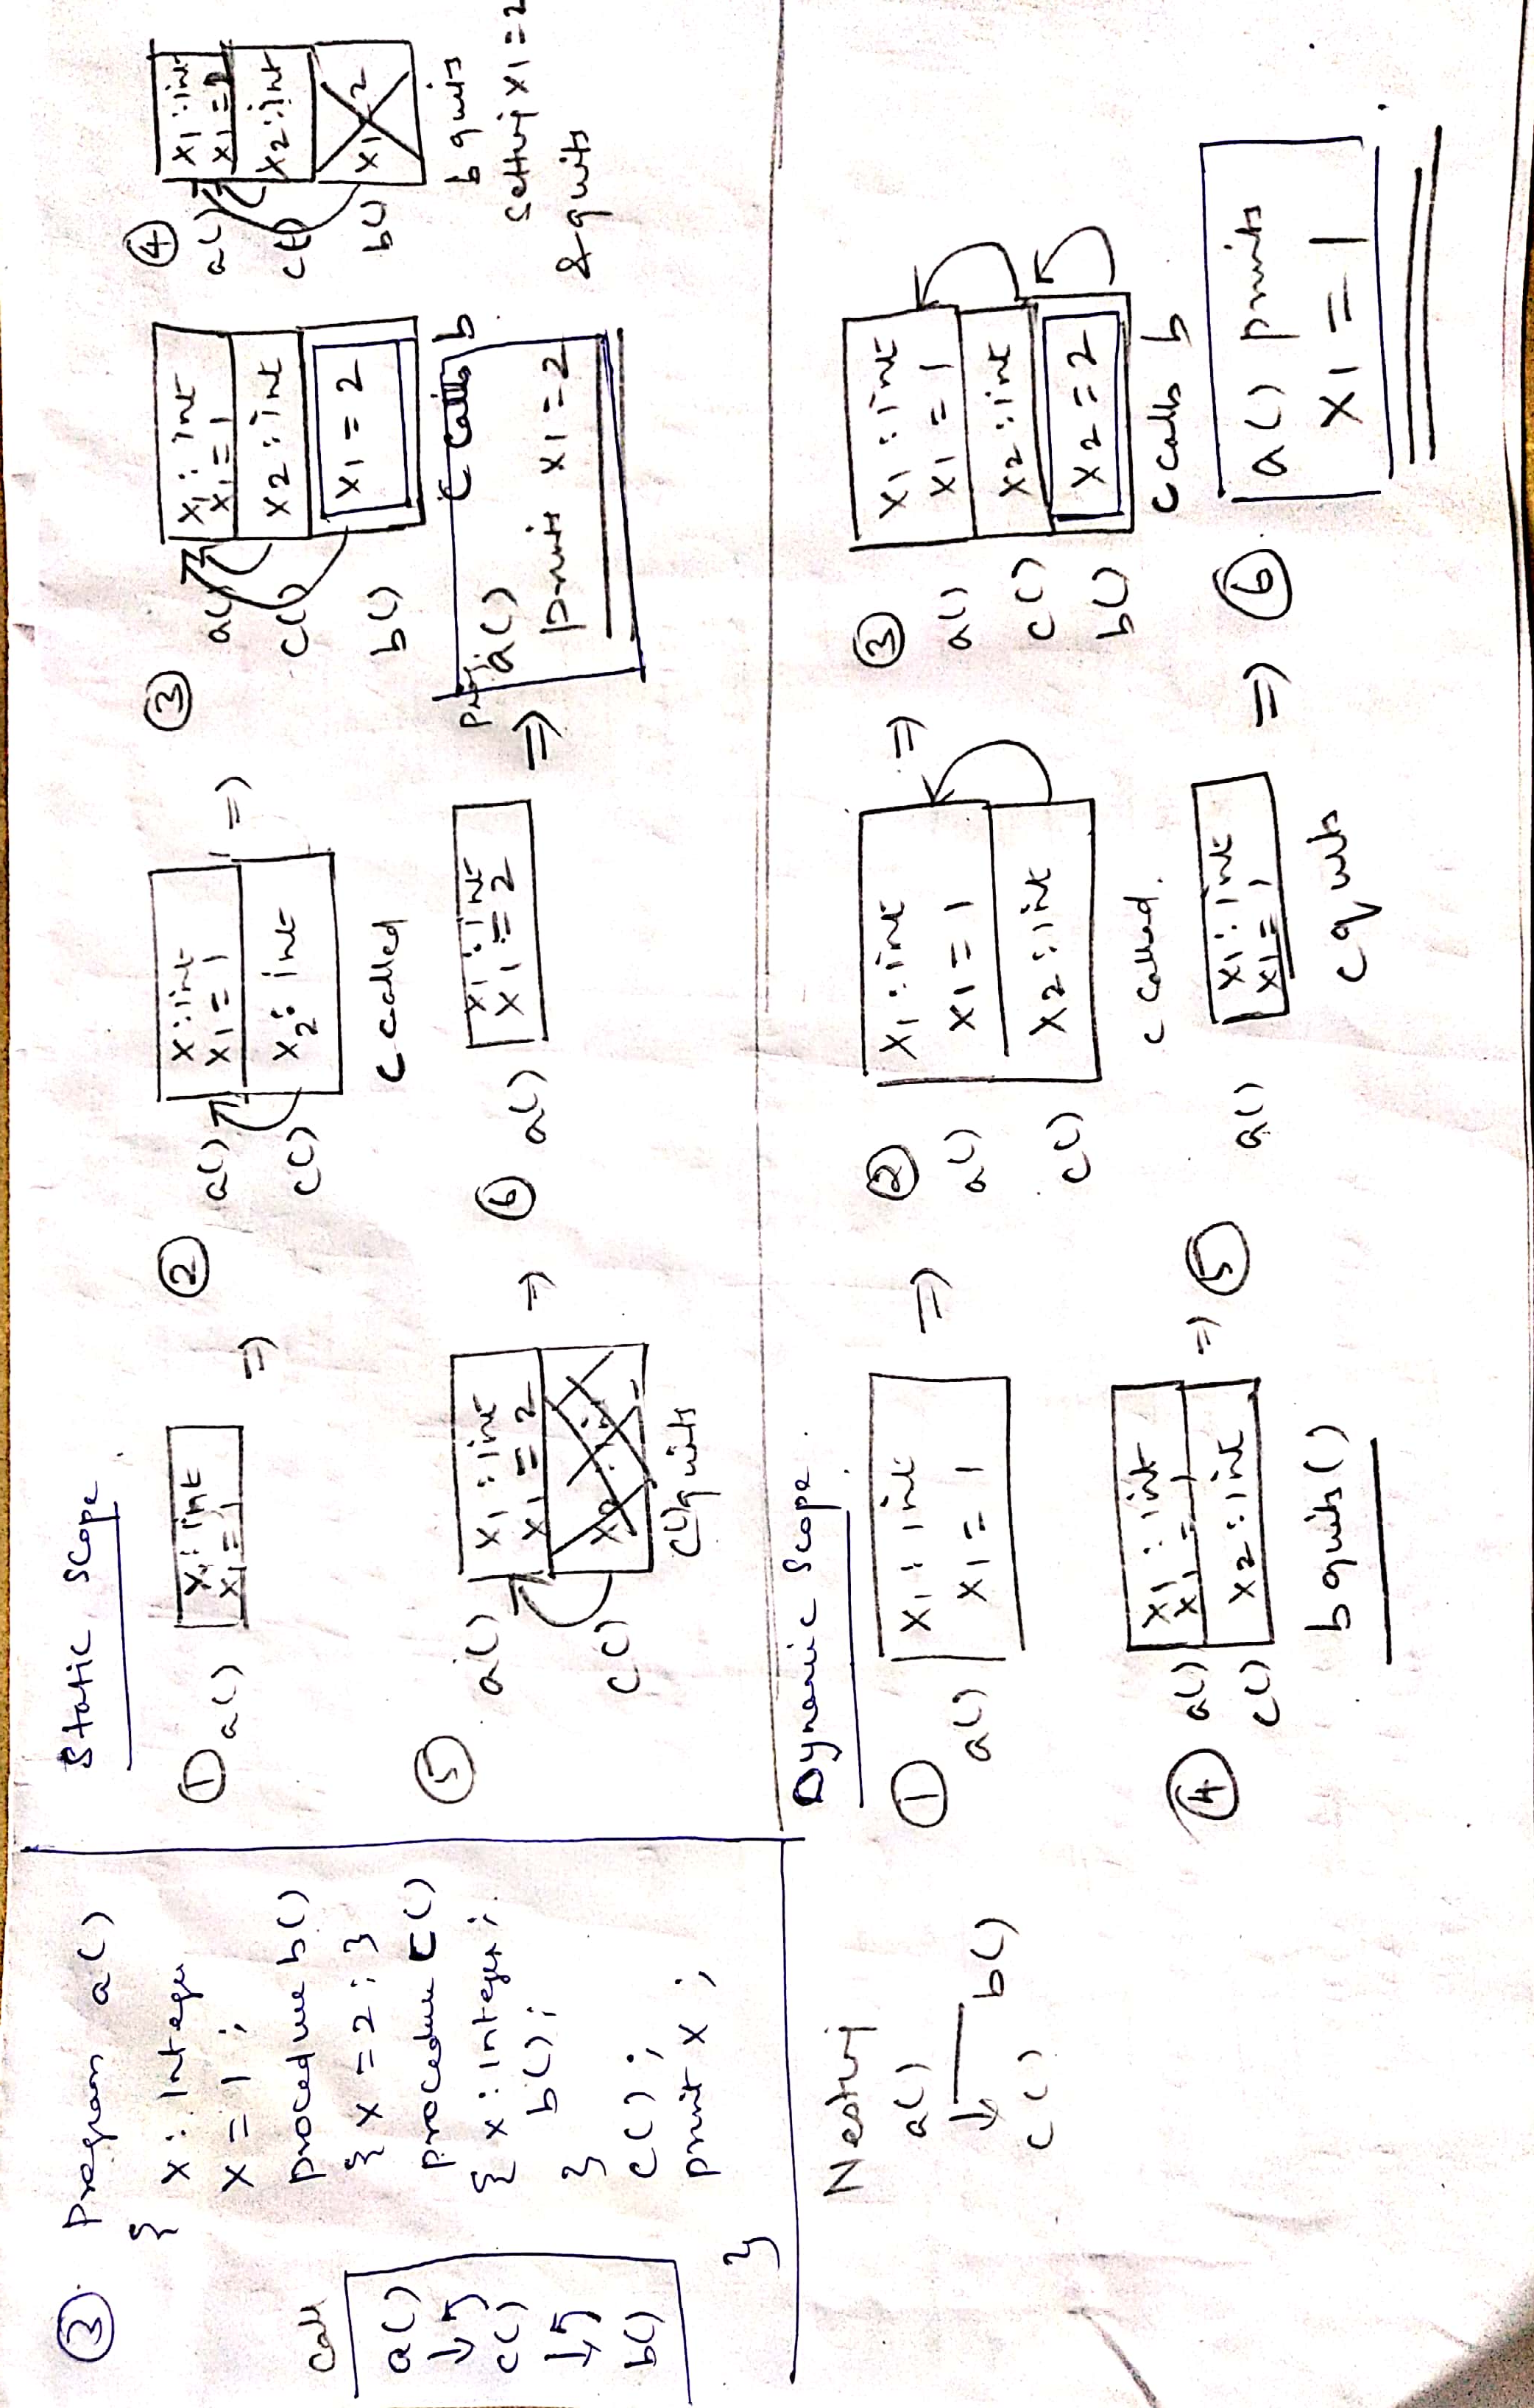 ②
Program a()
{
x : Integer
x = 1 ;
procedure b()
{ x = 2 ; }
procedure c()
{ x : integer ;
b() ;
}
c() ;
print x ;
}
call
a()
c()
b()
Nesting
a()
b()
c()
Static Scope
①
a()
x1 : int
x1 = 1
⇒
②
a()
x : int
x1 = 1
c()
x2 : int
c called
⇒
③
a()
x1 : int
x1 = 1
c()
x2 : int
b()
x1 = 2
c calls b
④
a()
x1 : int
x1 = 2
c()
x2 : int
b()
x1 = 2
b quits
setting x1 = 2
& quits
⑤
a()
x1 : int
x1 = 2
c()
x2 : int
c() quits
⇒
⑥
a()
x1 : int
x1 = 2
⇒
a()
prints x1 = 2
Dynamic Scope
①
a()
x1 : int
x1 = 1
⇒
②
a()
x1 : int
x1 = 1
c()
x2 : int
c called.
⇒
③
a()
x1 : int
x1 = 1
c()
x2 : int
b()
x2 = 2
c calls b
④
a()
x1 : int
x1 = 1
c()
x2 : int
b quits()
⇒
⑤
a()
x1 : int
x1 = 1
c quits
⇒
⑥
a() prints
x1 = 1